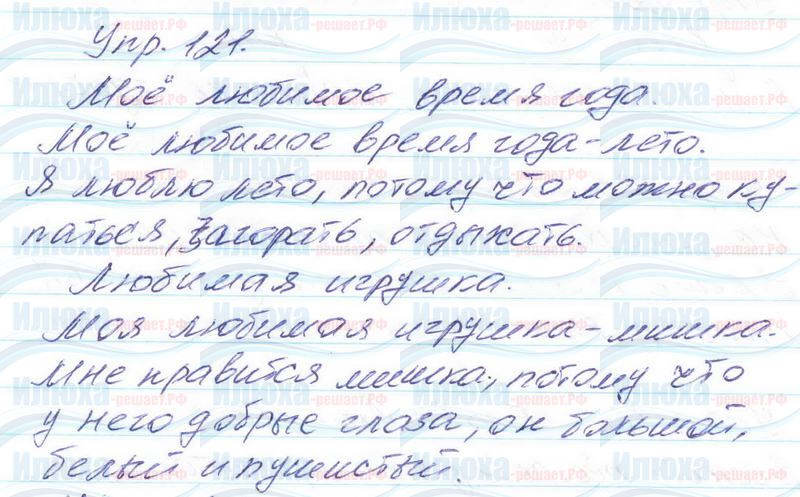 Упр. 121.
Моё любимое время года.
Моё любимое время года - лето.
Я люблю лето, потому что можно ку-
паться, загорать, отдыхать.
Любимая игрушка.
Моя любимая игрушка - мишка.
Мне нравится мишка, потому что
у него добрые глаза, он большой,
белый и пушистый.